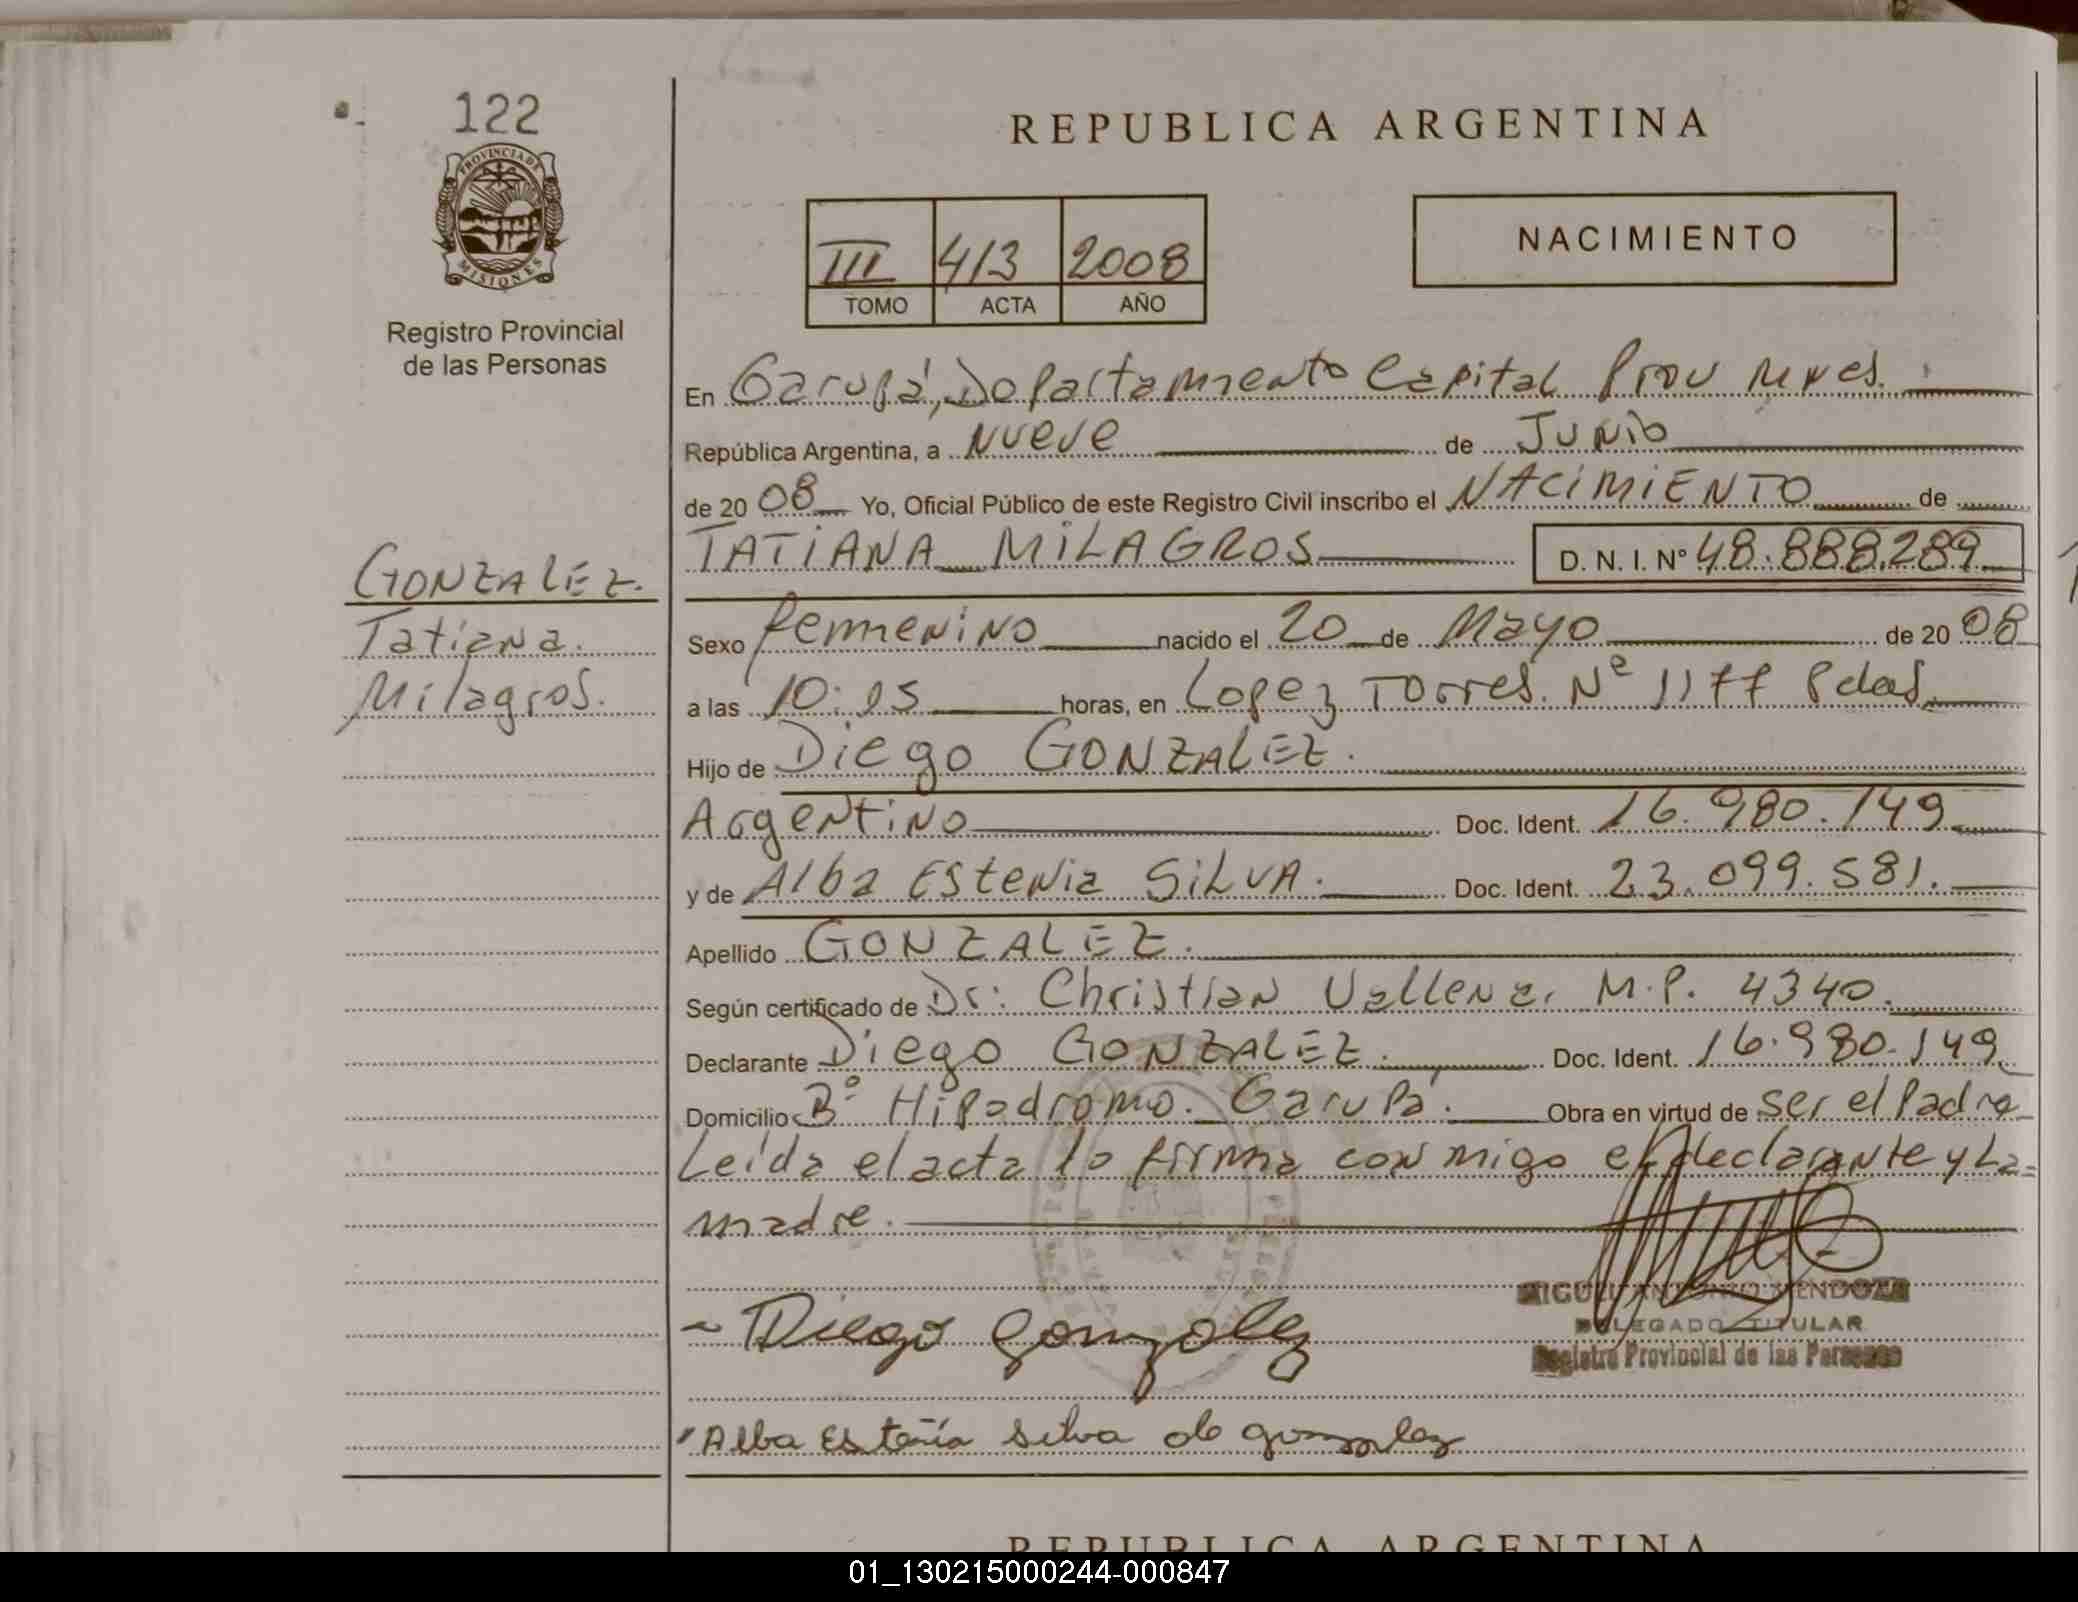 122
PROVINCIA DE
MISIONES
Registro Provincial
de las Personas
REPUBLICA ARGENTINA
III 413 2008
TOMO ACTA AÑO
NACIMIENTO
En Garupá, Departamento Capital Prov Mnes.
República Argentina, a Nueve de Junio
de 20 08 Yo, Oficial Público de este Registro Civil inscribo el NACIMIENTO de
TATIANA MILAGROS D. N. I. Nº 48.888.289
GONZALEZ.
Tatiana.
Milagros.
Sexo femenino nacido el 20 de Mayo de 20 08
a las 10:15 horas, en Lopez Torres. Nº 1177 Pdas.
Hijo de Diego GONZALEZ.
Argentino Doc. Ident. 16.980.149
y de Alba Estenia SILVA. Doc. Ident. 23.099.581.
Apellido GONZALEZ.
Según certificado de Dr: Christian Vallena. M.P. 4340.
Declarante Diego GONZALEZ. Doc. Ident. 16.980.149
Domicilio Bº Hipodromo. Garupá. Obra en virtud de ser el Padre
Leída el acta lo firma conmigo el declarante y La=
madre.
Diego Gonzalez
MIGUEL ANTONIO MENDOZA
DELEGADO TITULAR
Registro Provincial de las Personas
Alba Estenia Silva de gonzalez
REPUBLICA ARGENTINA
01_130215000244-000847